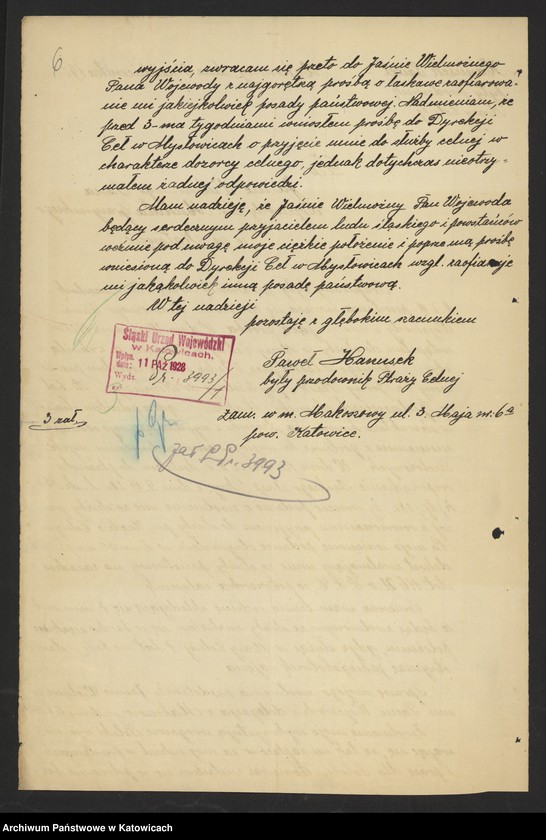 6
wyjścia, zwracam się przeto do Jaśnie Wielmożnego
Pana Wojewody z najgorętszą prośbą o łaskawe zaofiarowa-
nie mi jakiejkolwiek posady państwowej. Nadmieniam, że
przed 3-ma tygodniami wniosłem prośbę do Dyrekcji
Ceł w Mysłowicach o przyjęcie mnie do służby celnej w
charakterze dozorcy celnego, jednak dotychczas nieotrzy-
małem żadnej odpowiedzi.
Mam nadzieję, że Jaśnie Wielmożny Pan Wojewoda
będący serdecznym przyjacielem ludu śląskiego i powstańców
weźmie pod uwagę moje ciężkie położenie i poprze mą prośbę
wniesioną do Dyrekcji Ceł w Mysłowicach wzgl. zaofiaruje
mi jakąkolwiek inną posadę państwową.
W tej nadzieji
pozostaję z głębokim szacunkiem
Śląski Urząd Wojewódzki
w Katowicach.
Wpłyn.
dnia: 11 PAŹ 1928
Wydz. 3993/1
Paweł Hanusek
były przodownik Straży Celnej
3 zał.
zam. w m. Makoszowy ul. 3. Maja nr. 6a
pow. Katowice.
3993
Archiwum Państwowe w Katowicach